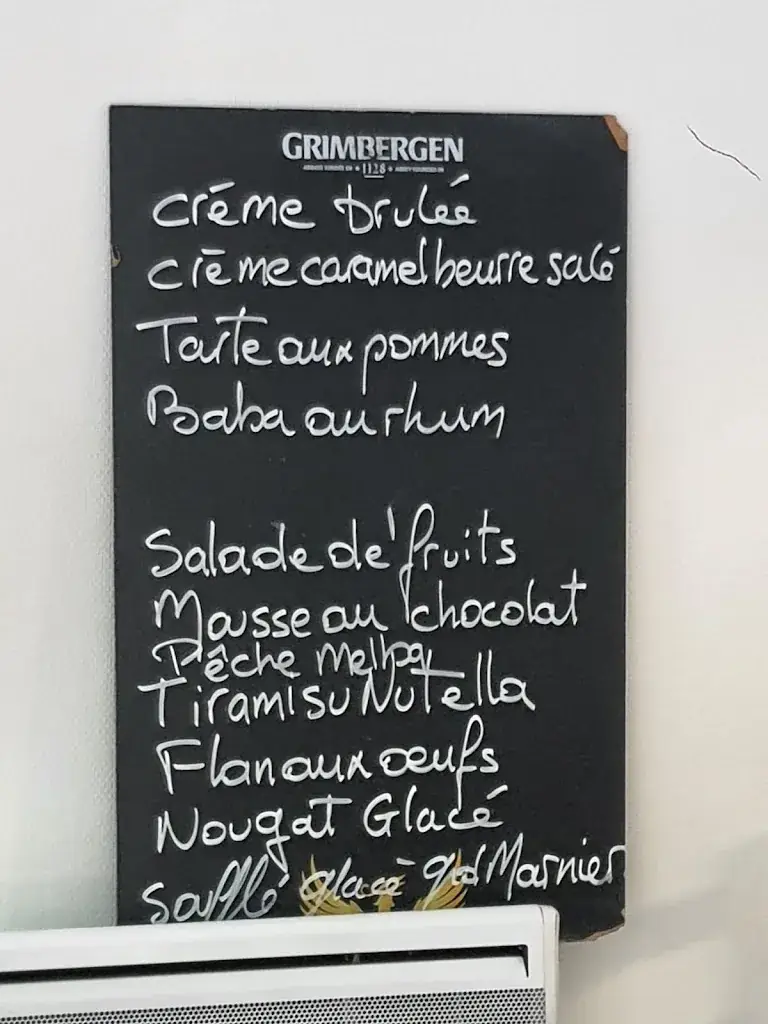 GRIMBERGEN
1128
créme brulée
crème caramel beurre salé
Tarte aux pommes
Baba au rhum
Salade de fruits
Mousse au chocolat
Pêche Melba
Tiramisu Nutella
Flan aux œufs
Nougat Glacé
Soufflé glacé gd Marnier